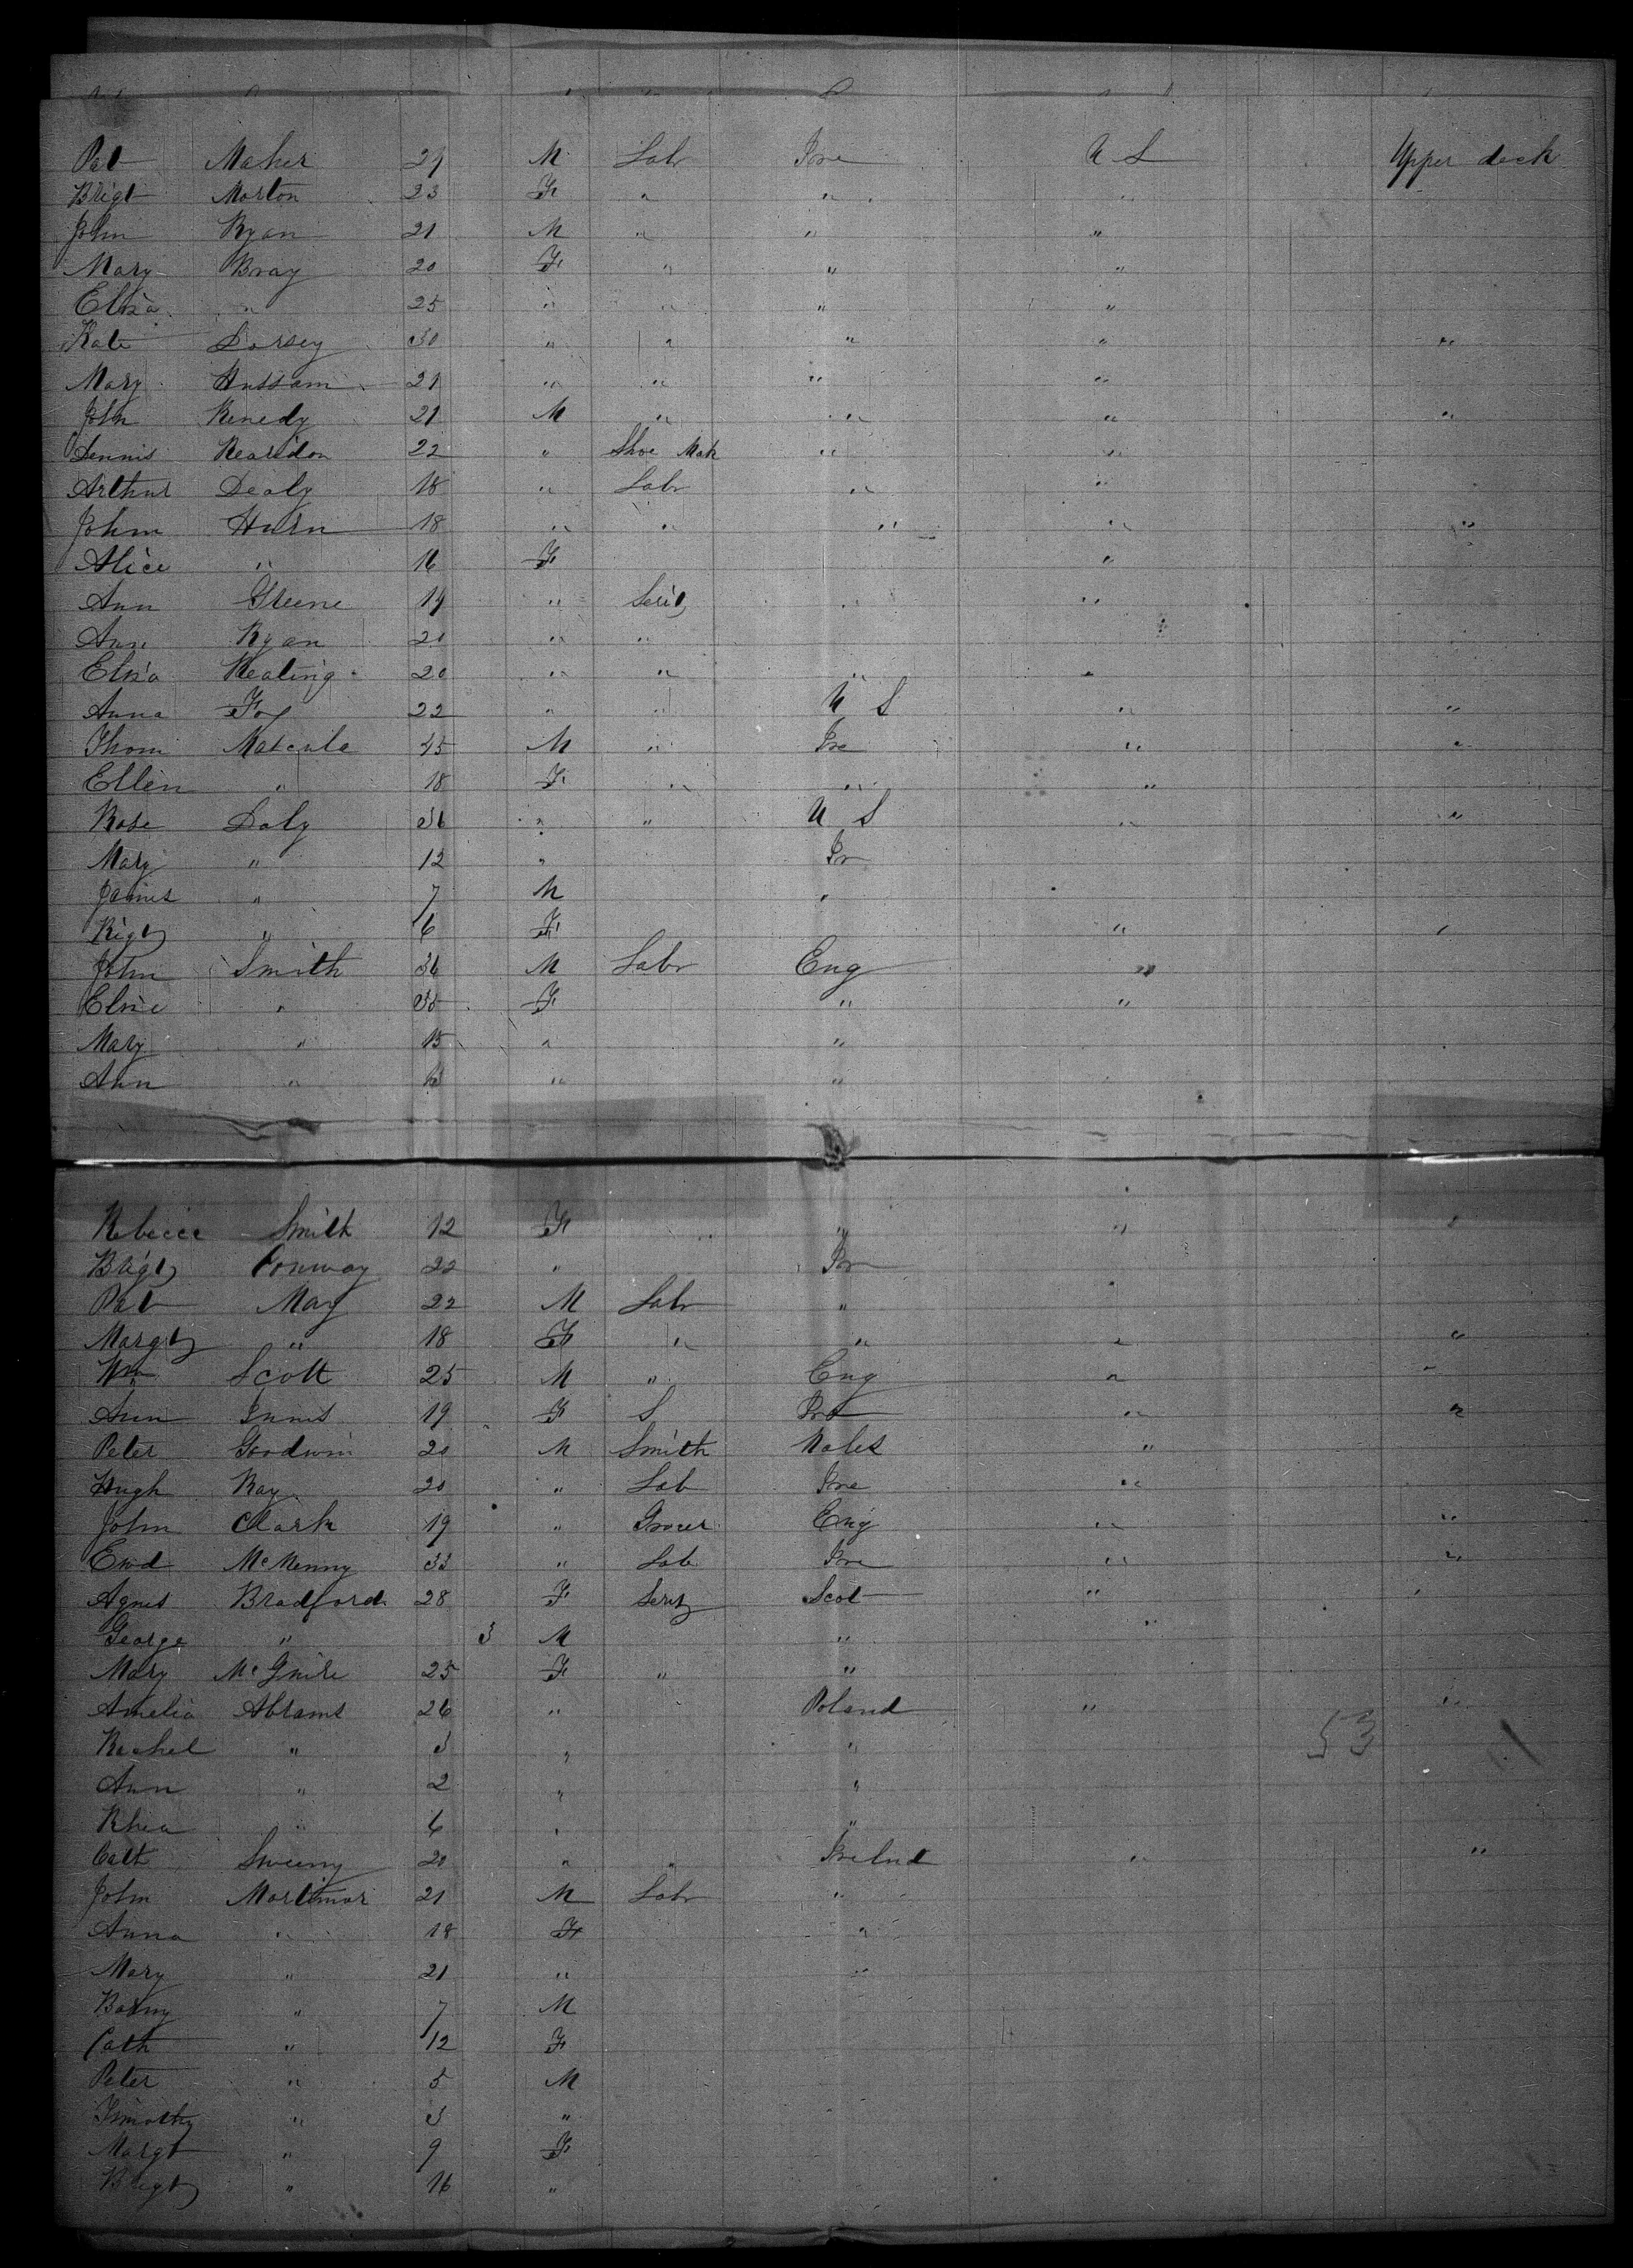 Pat Maher 29 M Labr Ire U S Upper deck
Brigt Morton 23 F " " "
John Ryan 21 M " " "
Mary Bray 20 F " " "
Eliza " 25 " " " "
Kate Dorsey 30 " " " " "
Mary Hussam 21 " " " "
John Kenedy 21 M " " " "
Dennis Reardon 22 " Shoe Mak " "
Arthur Dealy 18 " Labr " "
John Hurn 18 " " " " "
Alice " 16 F "
Ann Greene 19 " " "
Ann Ryan 20 " "
Eliza Keating 20 " " " "
Anna Fox 22 " " U S " "
Thom 45 M " Ire " "
Ellen " 18 F " " "
Rose Daly 36 " " U S " "
Mary " 12 " Ir
James " 7 M "
" 6 F " "
John Smith 36 M Labr Eng "
" F " "
Mary " 15 " "
Ann " " "
Rebecca Smith 12 F " " "
Brigt Conway 22 " Ire
Pat May 22 M Labr " "
Margt " 18 F " " " "
Wm Scott 25 M " Eng " "
Ann Innis 19 F S Ire " "
Peter Goodwin 20 M Smith Wales "
Hugh Ray 20 " Lab Ire "
John Clark 19 " Grocer Eng " "
Ewd McKenny 33 " Lab Ire " "
Agnes Bradford 28 F Servt Scot " "
George " 3 M " "
Mary McGuire 25 F " "
Amelia Abrams 26 " Poland " "
Rachel " 3 " " 53
Ann " 2 " "
Rhea " 6 " "
Cath Sweeny 20 " " Irelnd " "
John Mortimor 21 M Labr "
Anna " 18 F "
Mary " 21 " "
Barny " 7 M
Cath " 12 F
Peter " 5 M
Timothy " 3 "
Margt " 9 F
Brigt " 16 "